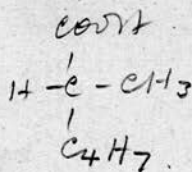 COOH
H - C - CH3
C4H7.